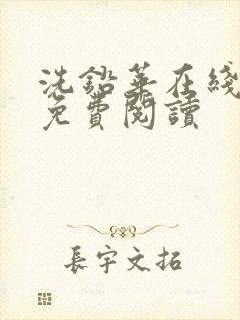 洗鉛華在綫
免費閱讀
長宇文拓